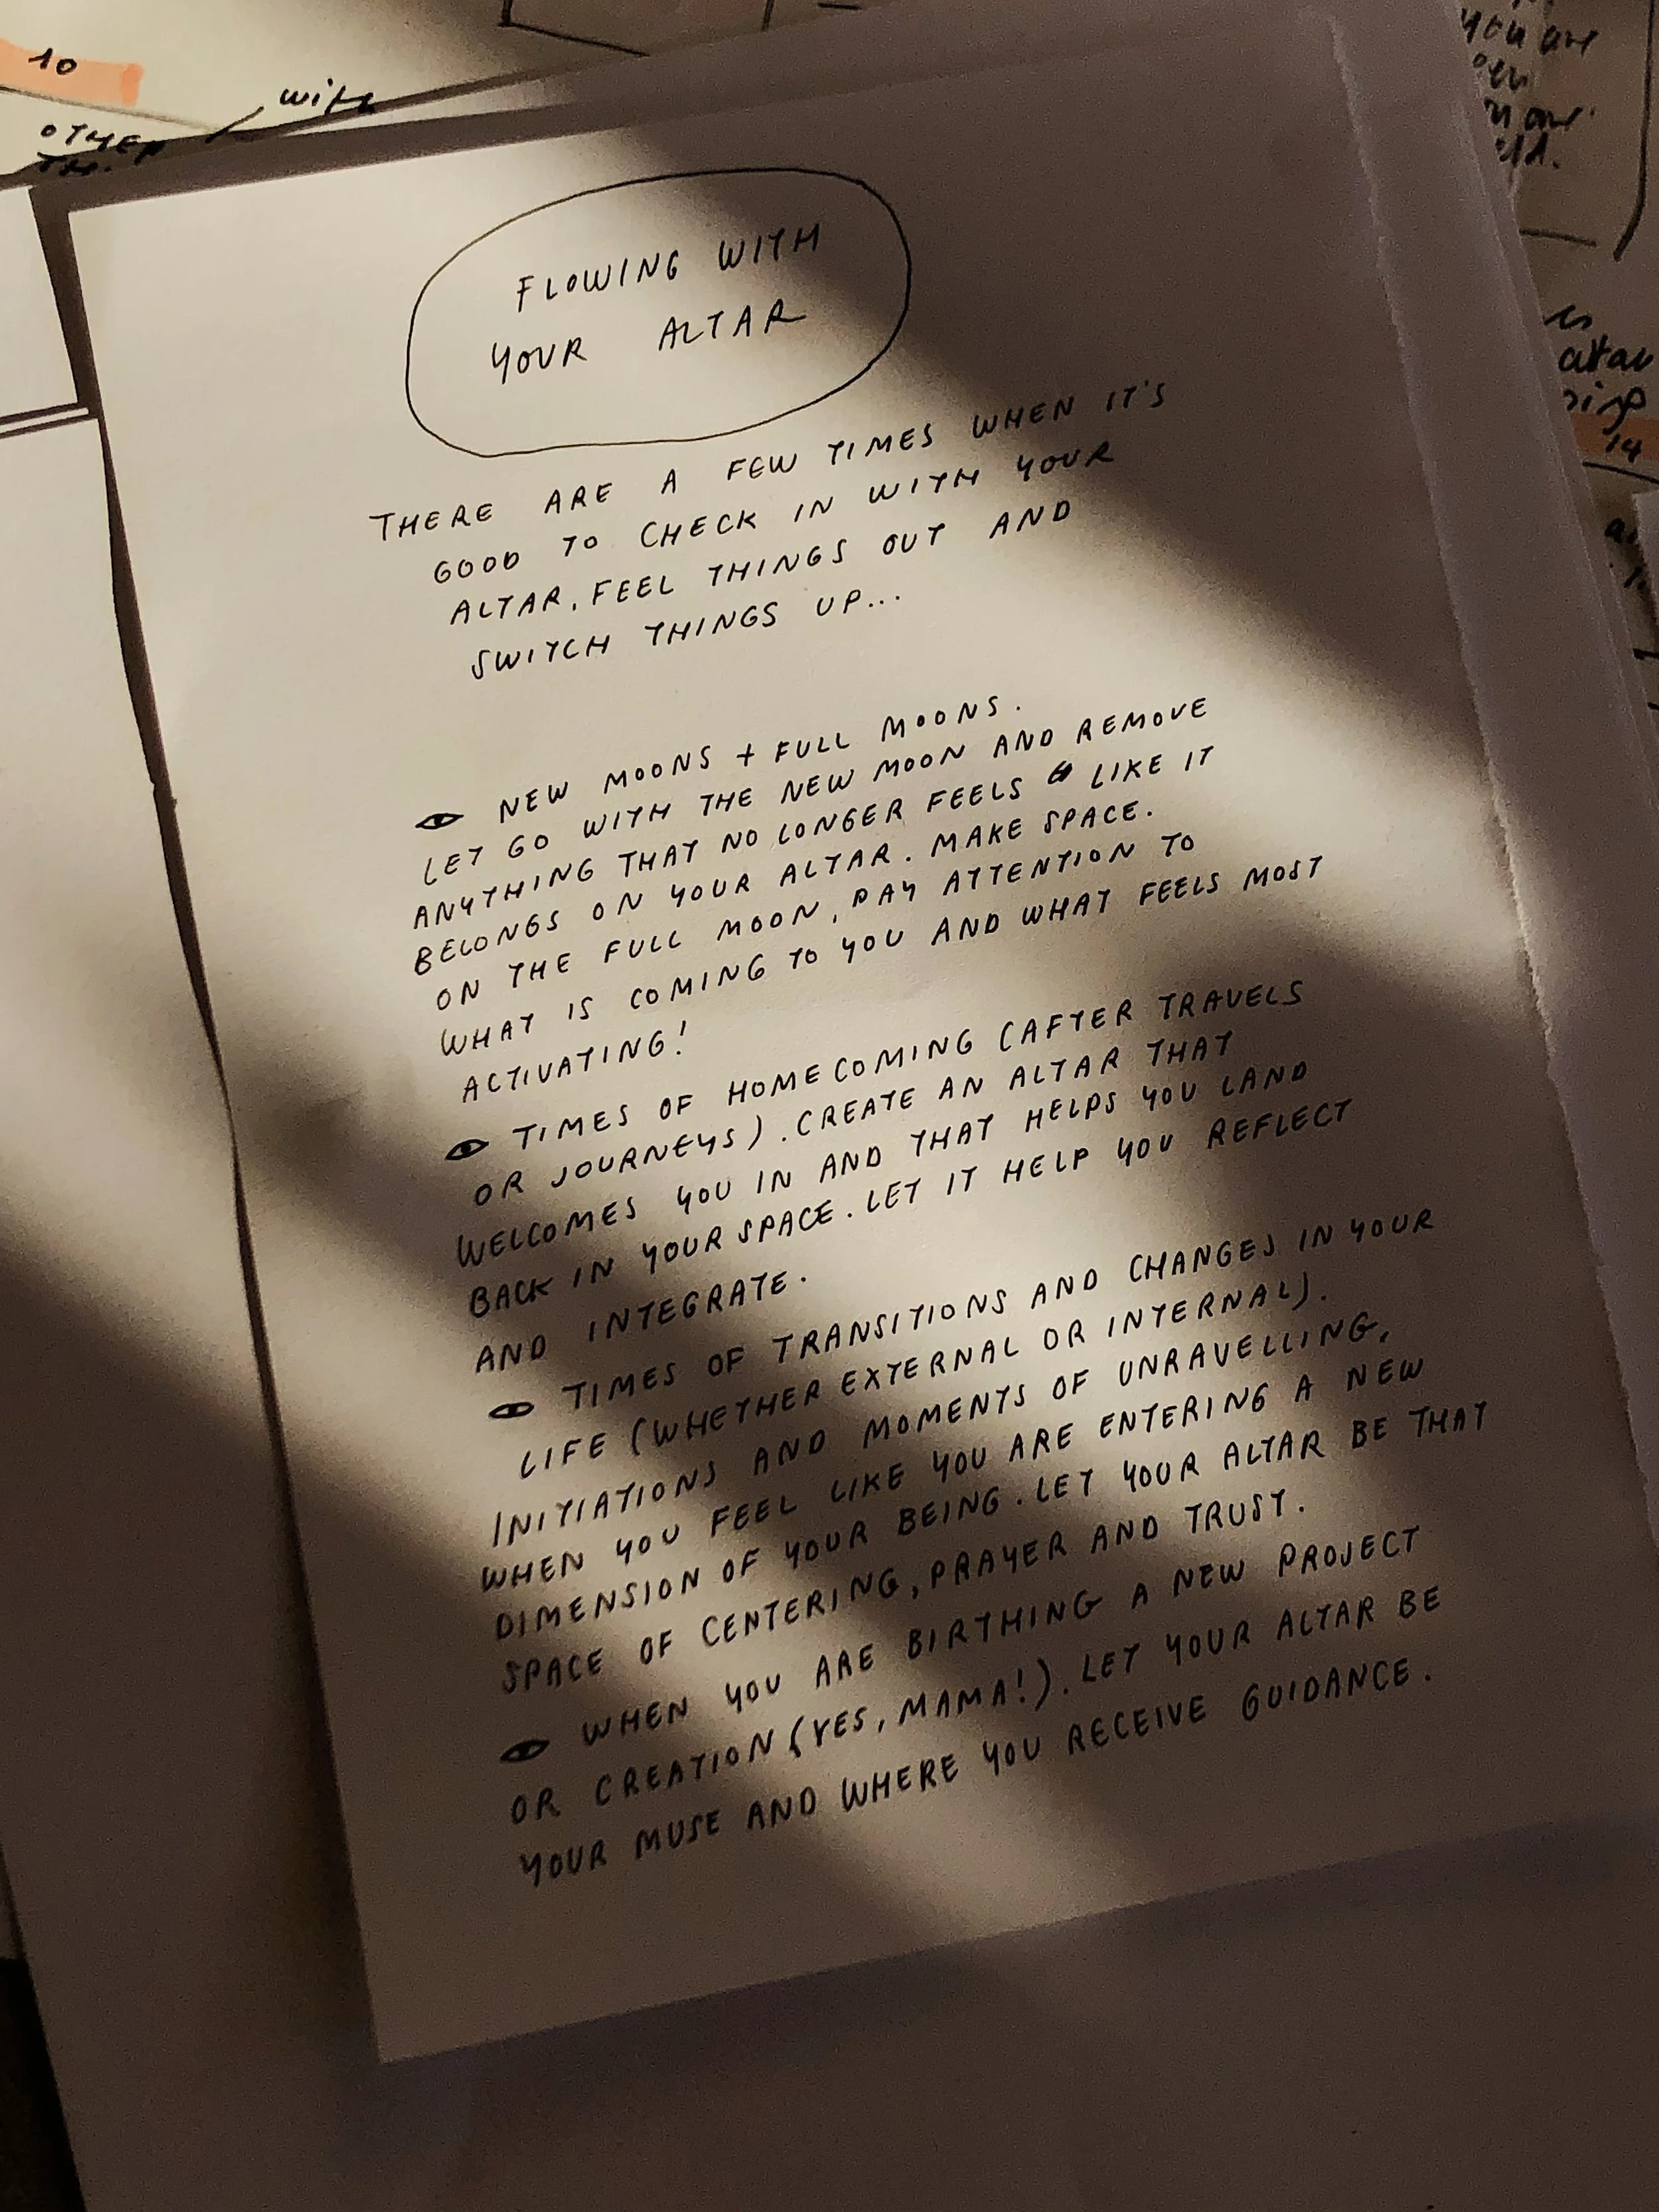 10
with
OTHER
you are
altar
14
FLOWING WITH
YOUR ALTAR
THERE ARE A FEW TIMES WHEN IT'S
GOOD TO CHECK IN WITH YOUR
ALTAR, FEEL THINGS OUT AND
SWITCH THINGS UP...
NEW MOONS + FULL MOONS.
LET GO WITH THE NEW MOON AND REMOVE
ANYTHING THAT NO LONGER FEELS LIKE IT
BELONGS ON YOUR ALTAR. MAKE SPACE.
ON THE FULL MOON, PAY ATTENTION TO
WHAT IS COMING TO YOU AND WHAT FEELS MOST
ACTIVATING!
TIMES OF HOMECOMING (AFTER TRAVELS
OR JOURNEYS). CREATE AN ALTAR THAT
WELCOMES YOU IN AND THAT HELPS YOU LAND
BACK IN YOUR SPACE. LET IT HELP YOU REFLECT
AND INTEGRATE.
TIMES OF TRANSITIONS AND CHANGES IN YOUR
LIFE (WHETHER EXTERNAL OR INTERNAL).
INITIATIONS AND MOMENTS OF UNRAVELLING,
WHEN YOU FEEL LIKE YOU ARE ENTERING A NEW
DIMENSION OF YOUR BEING. LET YOUR ALTAR BE THAT
SPACE OF CENTERING, PRAYER AND TRUST.
WHEN YOU ARE BIRTHING A NEW PROJECT
OR CREATION (YES, MAMA!). LET YOUR ALTAR BE
YOUR MUSE AND WHERE YOU RECEIVE GUIDANCE.